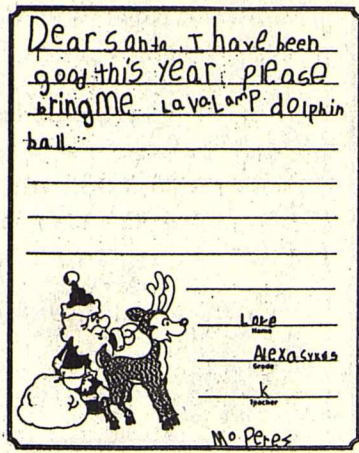 Dear santa. I have been
good this year. please
bring me Lava Lamp dolphin
ball.
Love
Name
Alexa Sykes
Grade
K
Teacher
Mo. Peres